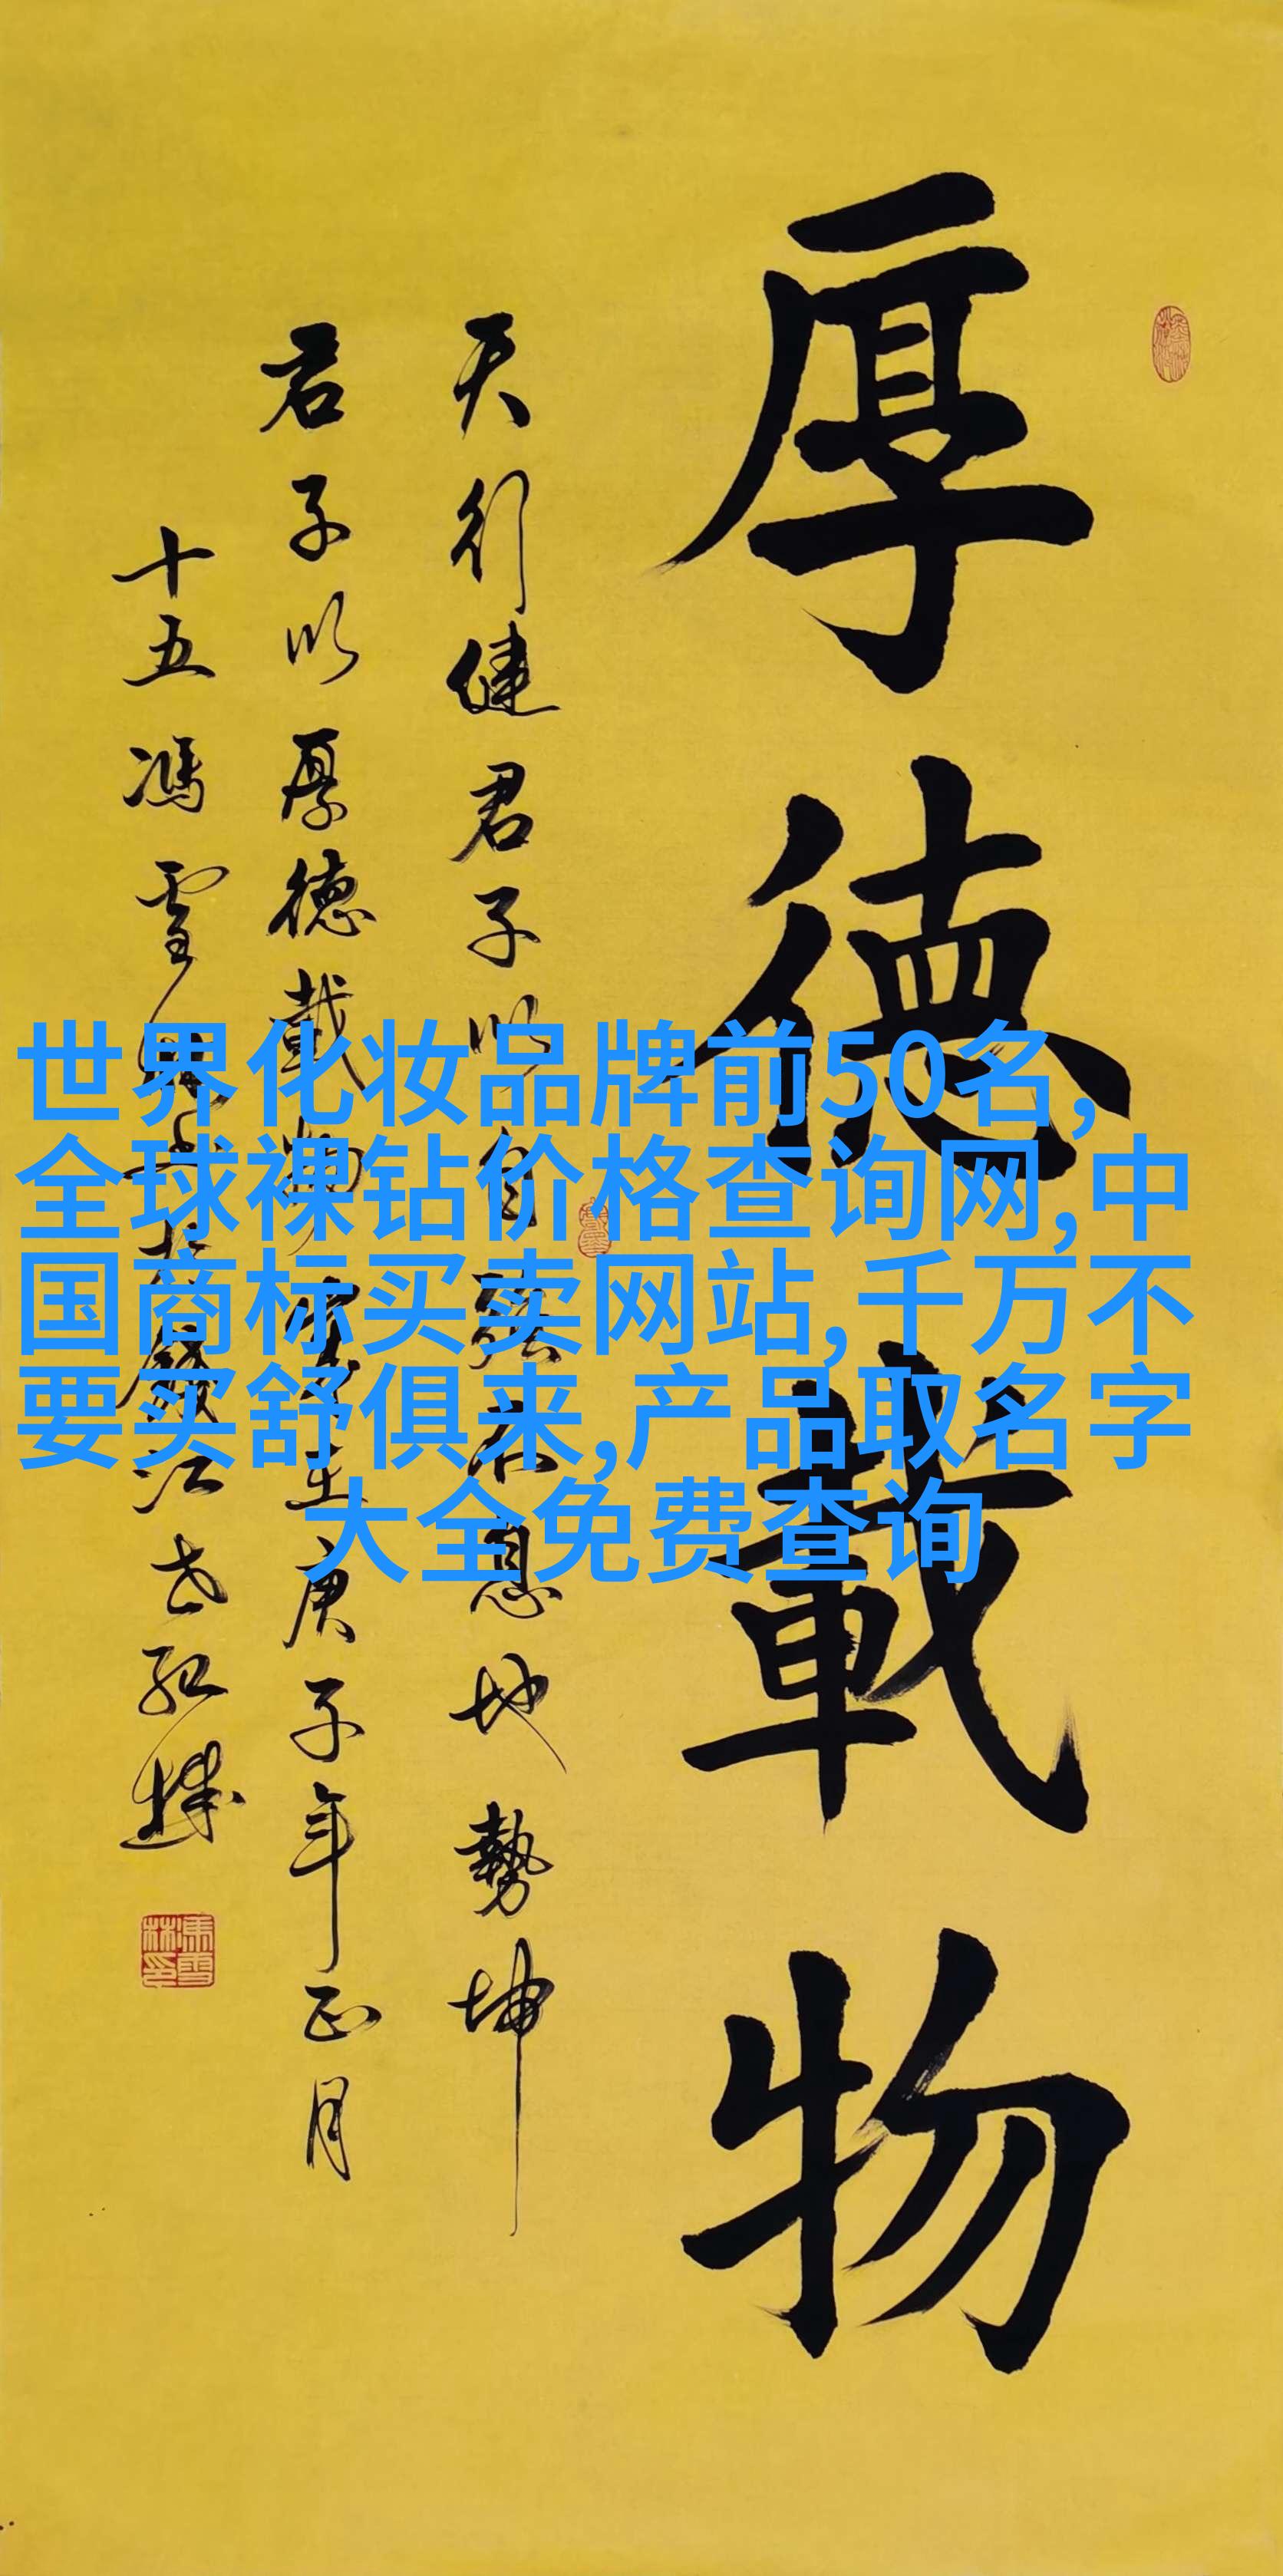 厚德載物
天行健君子以自强不息地勢坤
君子以厚德載物
庚子年正月
十五馮雪林
世界化妆品牌前50名,
全球裸钻价格查询网,中
国商标买卖网站,千万不
要买舒俱来,产品取名字
大全免费查询
馮雪林印